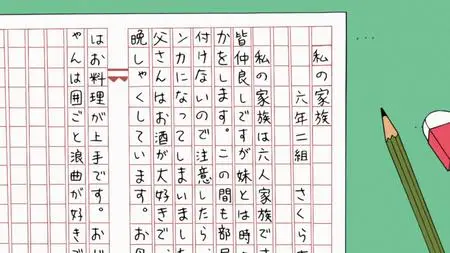 私の家族
六年二組 さくら
私の家族は六人家族で
皆仲良しですが妹とは時
かをします。この間も部屋
付けないので注意したら、
ンカになってしまいまし
父さんはお酒が大好きで、
晩しゃくしています。お
はお料理が上手です。おじ
ゃんは囲ごと浪曲が好きで